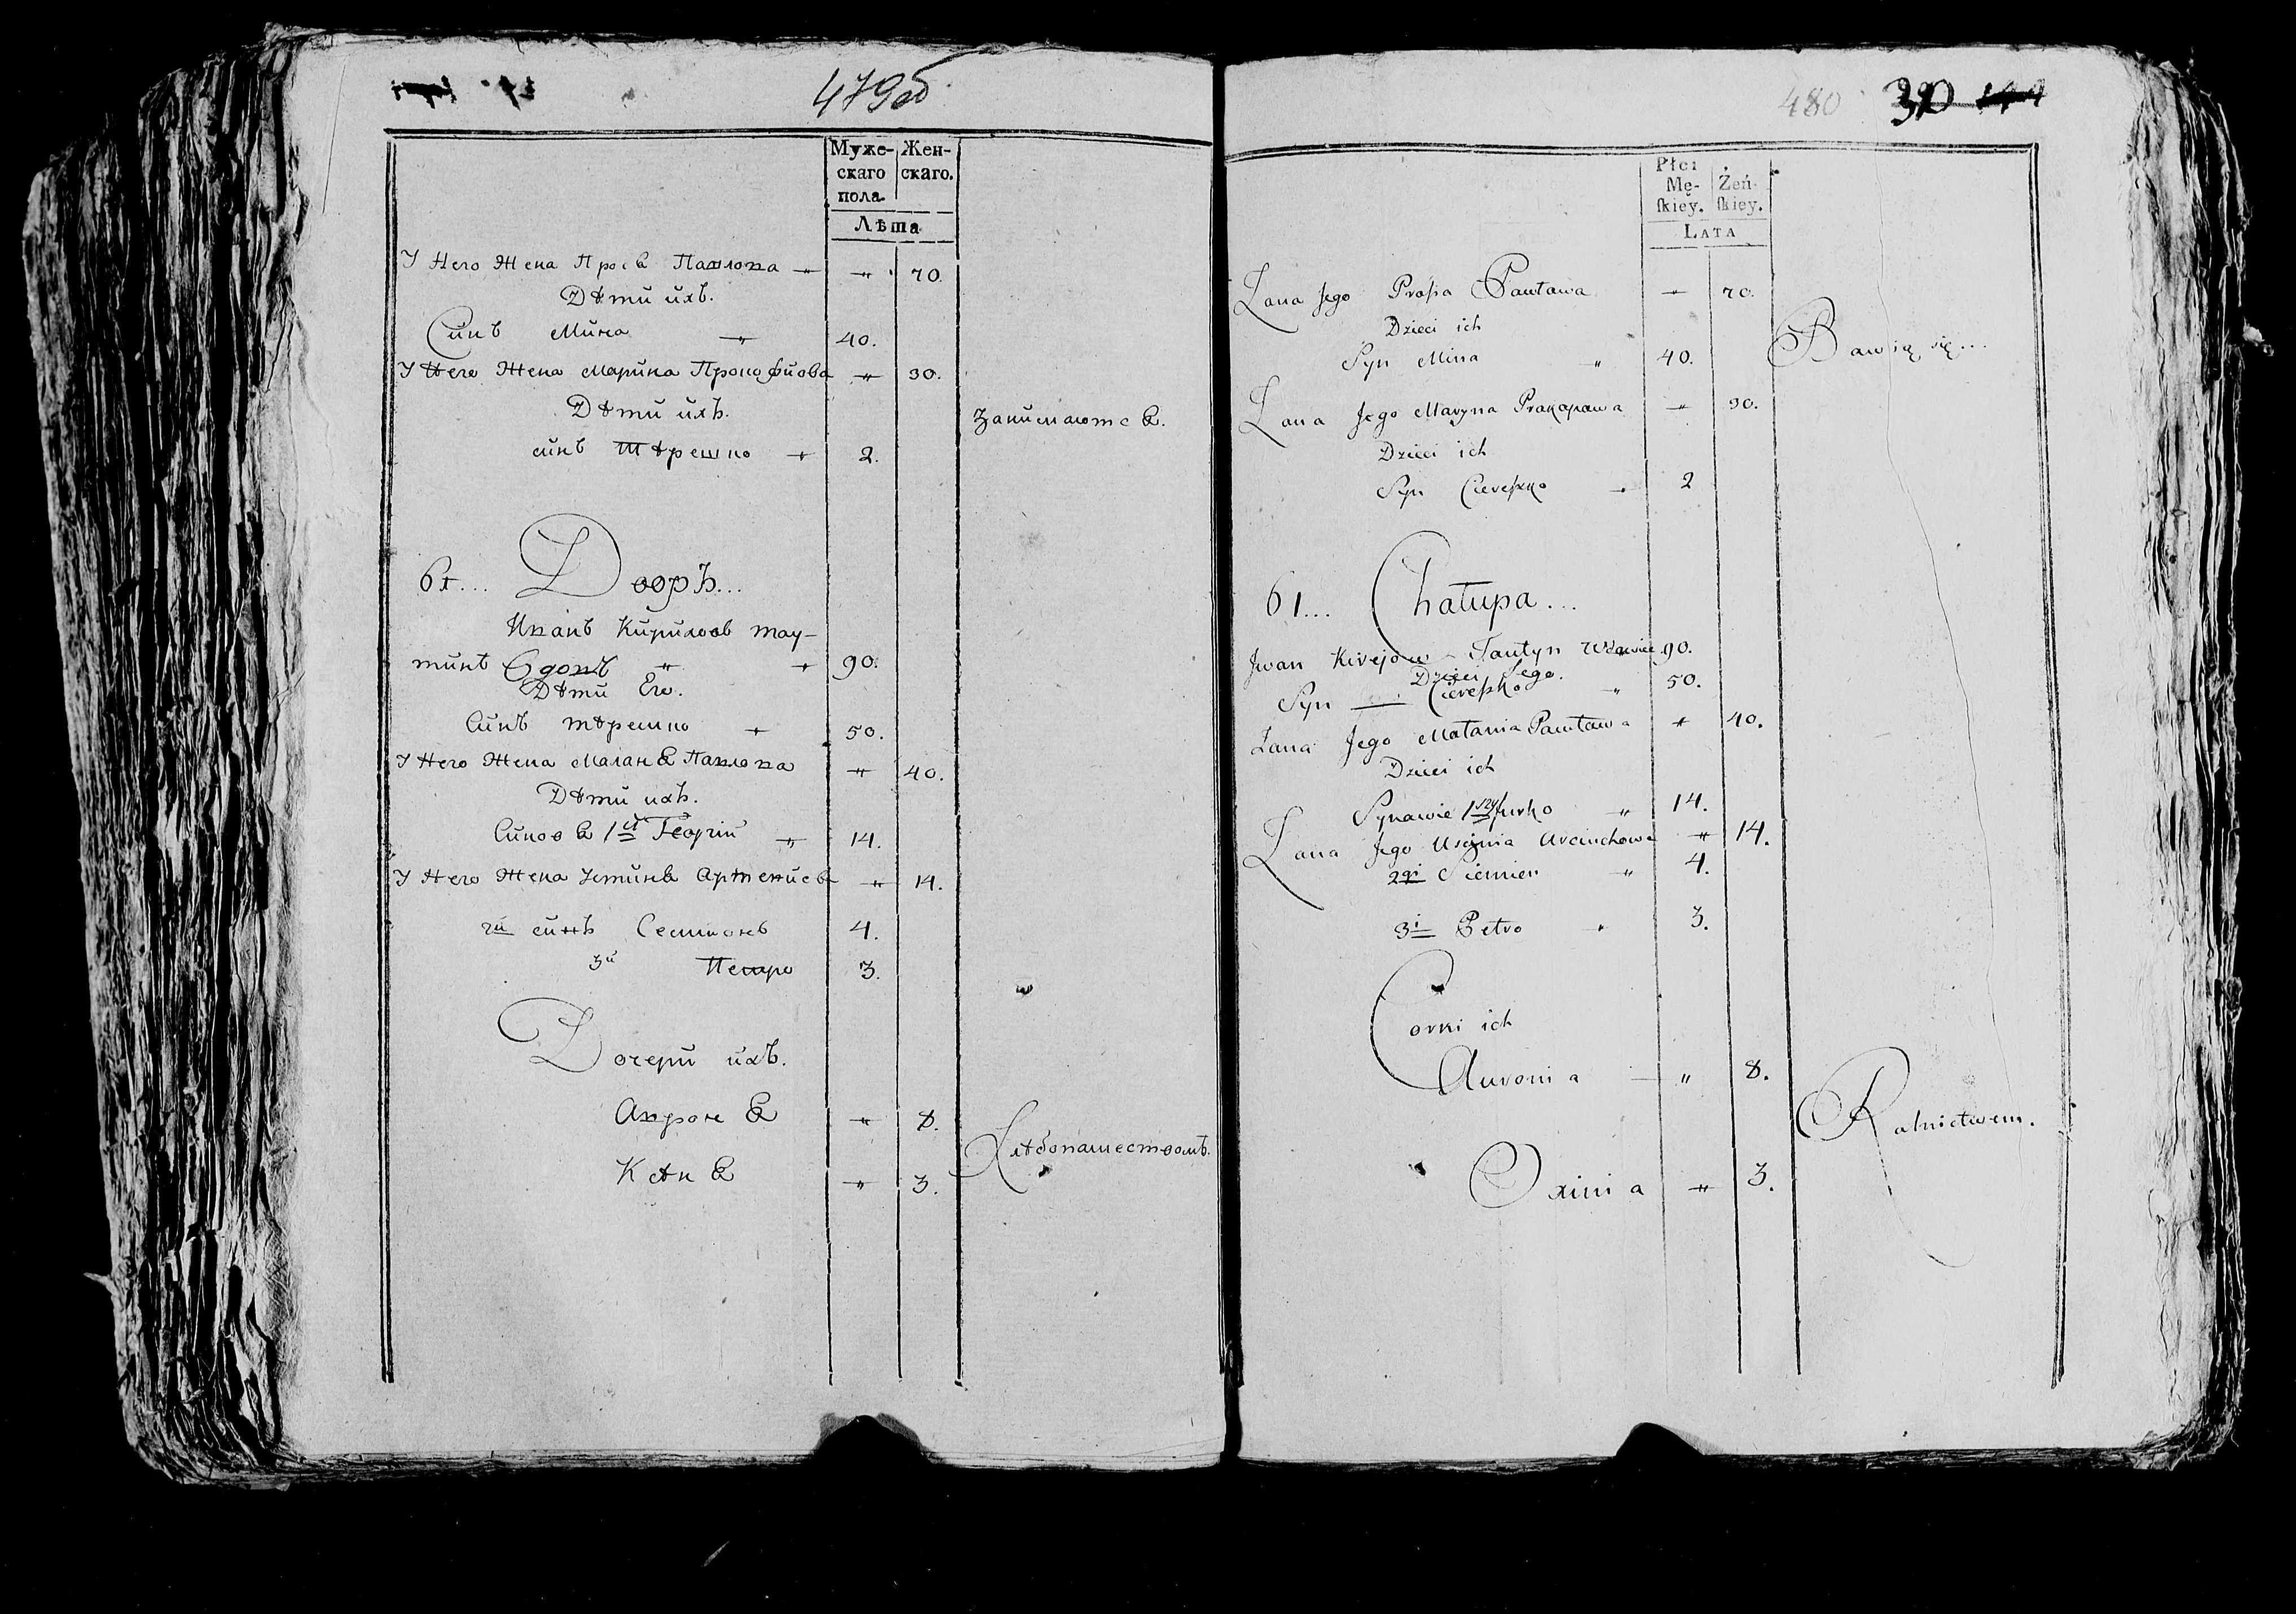 479об
Муже-
скаго
пола
Жен-
скаго.
Лѣта
У Него Жена Прося Павлова " " 70.
Дѣти ихъ.
Синъ Мина " 40.
У Него Жена Марина Прокофиова " 30.
Дѣти ихъ.
Занимаются.
синъ Тѣрешко " 2.
61... Дворъ...
Иванъ Кирилов Тау-
тинъ Вдовъ " " 90.
Дѣти Его.
Синъ Тѣрешко " 50.
У Него Жена Маланя Павлова " 40.
Дѣти ихъ.
Синовя 1й Георгии " 14.
У Него Жена Устиня Артемиева " 14.
2й синъ Семионъ 4.
3й Петро 3.
Дочери ихъ.
Авроня " 8.
Хлѣбопашествомъ.
Ксѣня " 3.
480 390
Płci
Mę-
ſkiey.
Żeń-
ſkiey.
LATA
Żana Jego Prosia Pawława " 70.
Dzieci ich
Syn Mina " 40.
Bawią się...
Żana Jego Maryna Prakapawa " 30.
Dzieci ich
Syn Cierеszko " 2
61... Chałupa...
Jwan Kirejow Tautyn Wdowiec 90.
Dzieci Jego.
Syn Ciereszko " 50.
Żana Jego Małania Pawława " 40.
Dzieci ich
Synawie 1szy Jurko " 14.
Żana Jego Uscinia Arciuchowa " 14.
2gi Siemien " 4.
3i Petro " 3.
Corki ich
Auronia " 8.
Rolnictwem.
Oxinia " 3.